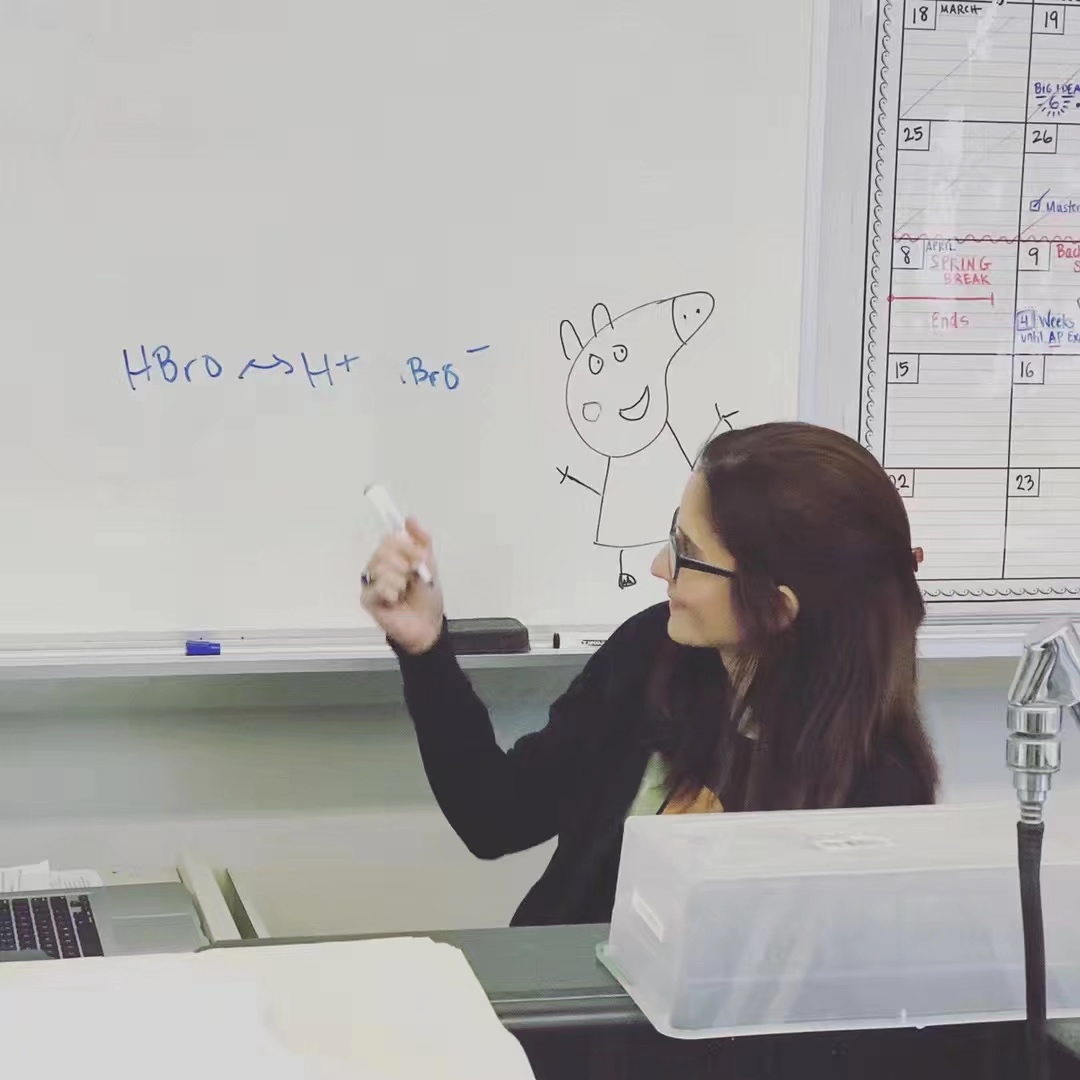 HBrO ⇌ H+ .BrO⁻
18 MARCH 19
BIG IDEA
6
25 26
☑ Master
8 APRIL 9
SPRING BREAK
Ends
Bac
4 Weeks
until AP Ex
15 16
22 23